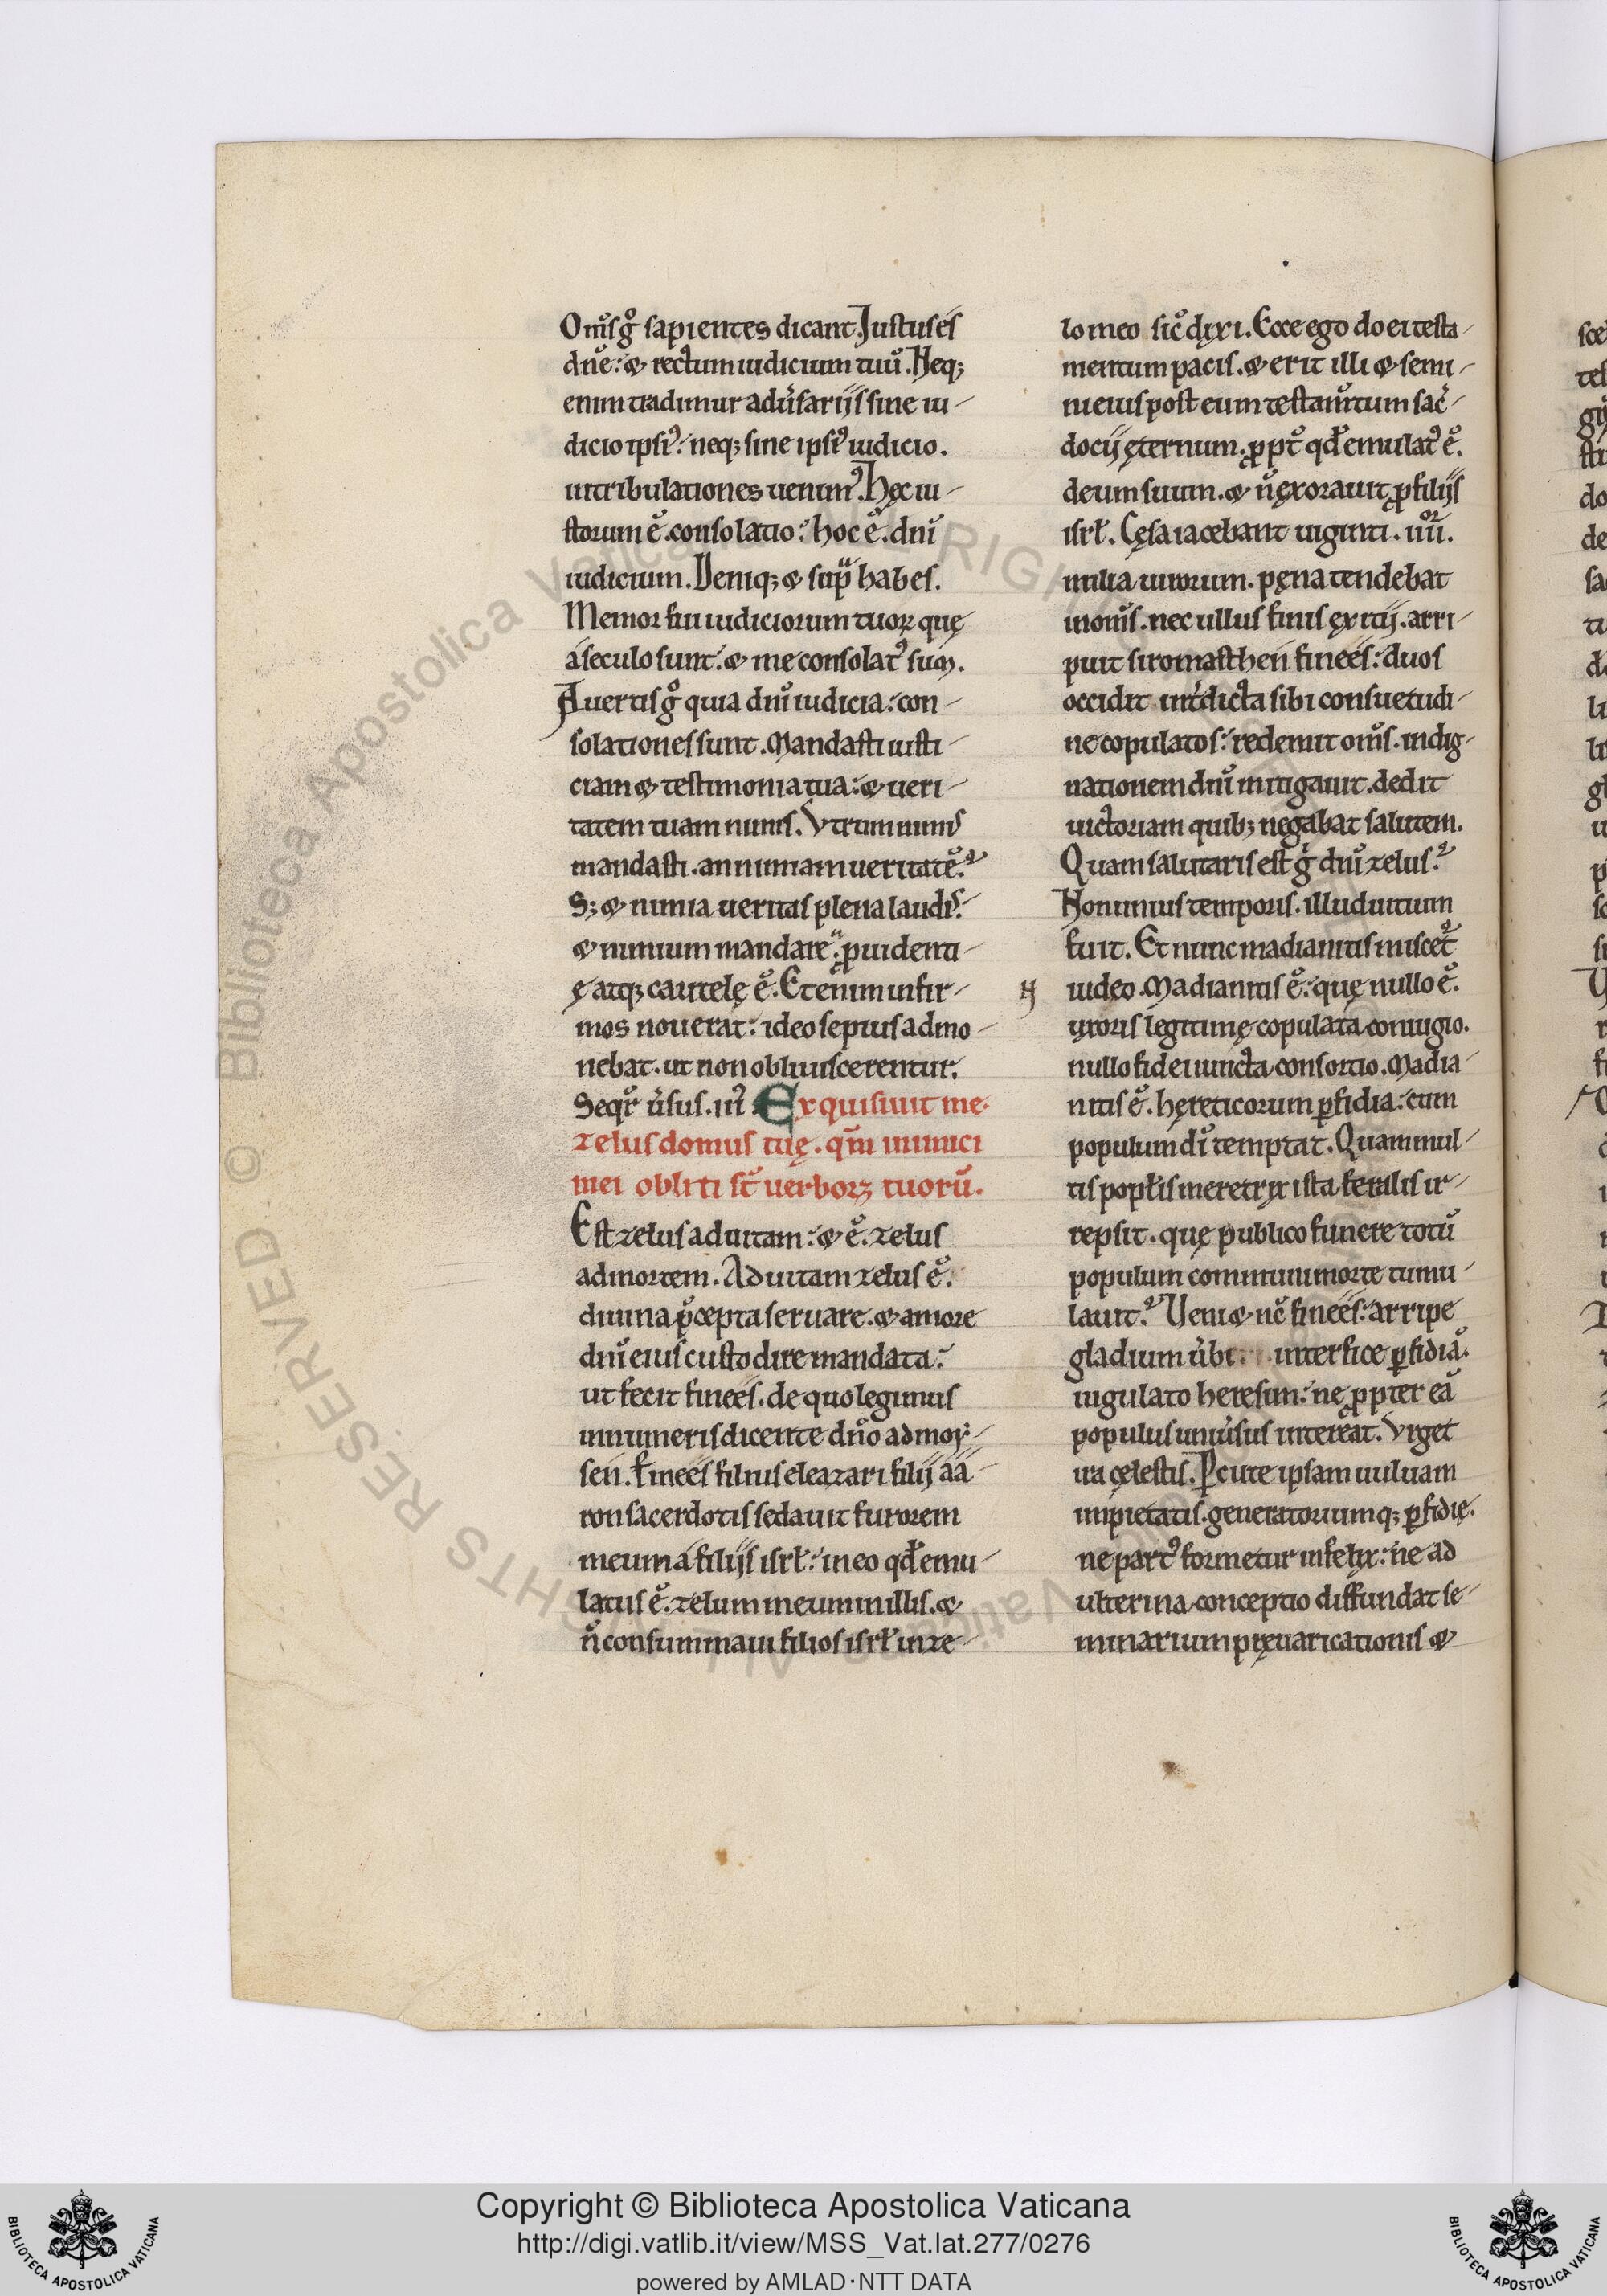 Om̄s gͦ sapientes dicant. Justus es
dn̄e: & rectum iudicium tuū. Neq;
enim tradimur adũsarijs sine iu-
dicio ipsiꝰ: neq; sine ipsiꝰ iudicio.
in tribulationes uenimꝰ. Hęc iu-
storum ē. consolatio: hoc ē. dn̄i
iudicium. Deniq; & sup̃ habes.
Memor fui iudiciorum tuoꝝ quę
á seculo sunt: & me consolatꝰ sum.
Auertis gͦ quia dn̄i iudicia: con-
solationes sunt. Mandasti iusti-
ciam & testimonia tua: & ueri-
tatem tuam nimis. Vtrum nimis
mandasti. an nimiam ueritatē.
S; & nimia ueritas plena laudis:
& nimium mandare: ꝓuidenti-
ę atq; cautelę ē. Etenim infir-
mos nouerat: ideo sepius admo-
nebat. ut non obliuiscerentur.
Seqr̃ ũsus. iiiꝰ. Exquisiuit me.
zelus domus tuę. qm̄ inimici
mei obliti st̄ uerboꝝ tuorū.
Est zelus ad uitam: & ē. zelus
ad mortem. Ad uitam zelus ē.
diuina p̃cepta seruare. & amore
dn̄i eius custodire mandata:
ut fecit finees. de quo legimus
in numeris dicente dn̄o ad moy-
sen. Finees filius eleazari filij áá-
ron sacerdotis sedauit furorem
meum á filijs isrł: in eo qđ emu-
latus ē. zelum meum in illis. &
n̄ consummaui filios isrł in ze-
lo meo sic̃ dixi. Ecce ego do ei testa-
mentum pacis. & erit illi & semi-
ni eius post eum testam̃tum sac̃-
docij ęternum. ꝓpt̃ qđ emulatꝰ ē.
deum suum. & n̄ exorauit ꝓ filijs
isrł. Cęsa iacebant uiginti. iiii.ͦʳ
milia uirorum. pęna tendebat
in om̄s. nec ullus finis exitij. arri-
puit siromasthen finees: duos
occidit int̃dicta sibi consuetudi-
ne copulatos: redemit om̄s. indig-
nationem dn̄i mitigauit. dedit
uictoriam quib; negabat salutem.
Quam salutaris est gͦ dn̄i zelus.
Non unius temporis. illud uitium
fuit. Et nunc madianitis miscet̃
iudeo. Madianitis ē: quę nullo ē.
uxoris legitimę copulata coniugio.
nullo fidei iuncta consortio. Madia-
nitis ē. hęreticorum ꝑfidia: cum
populum dī temptat. Quam mul-
tis popłis meretrix ista feralis ir-
repsit. quę publico funere totū
populum communi morte tumu-
lauit. Veni & nc̄ finees: arripe
gladium ũbi. interfice ꝑfidiā.
iugulato heresim: ne ꝓpter eā
populus uniũsus intereat. Vrget
ira cęlestis. Ꝑcute ipsam uuluam
impietatis. generatoriumq; ꝑfidię.
ne partꝰ formetur infelix: ne ad
ulterina conceptio diffundat se-
minarium pręuaricationis &
Copyright © Biblioteca Apostolica Vaticana
http://digi.vatlib.it/view/MSS_Vat.lat.277/0276
powered by AMLAD·NTT DATA